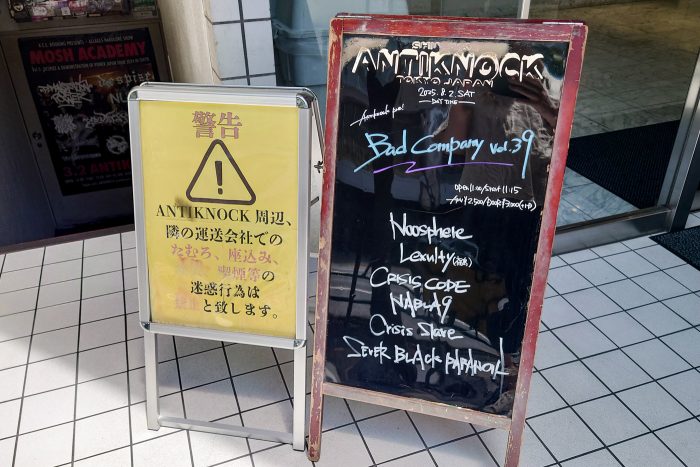 MOSH ACADEMY
3.2 ANTIK
警告
ANTIKNOCK 周辺、
隣の運送会社での
たむろ、座込み、
喫煙等の
迷惑行為は
と致します。
ANTIKNOCK
TOKYO JAPAN
2025. 8. 2. SAT
- DAY TIME -
Antiknock pre:
Bad Company vol.39
OPEN 11:00/START 11:15
ADV ¥2,500/DOOR ¥3,000(+1D)
Noosphere
Lexulty
CRISIS CODE
NABLA9
Crisis Slave
SEVER BLACK PARANOIA